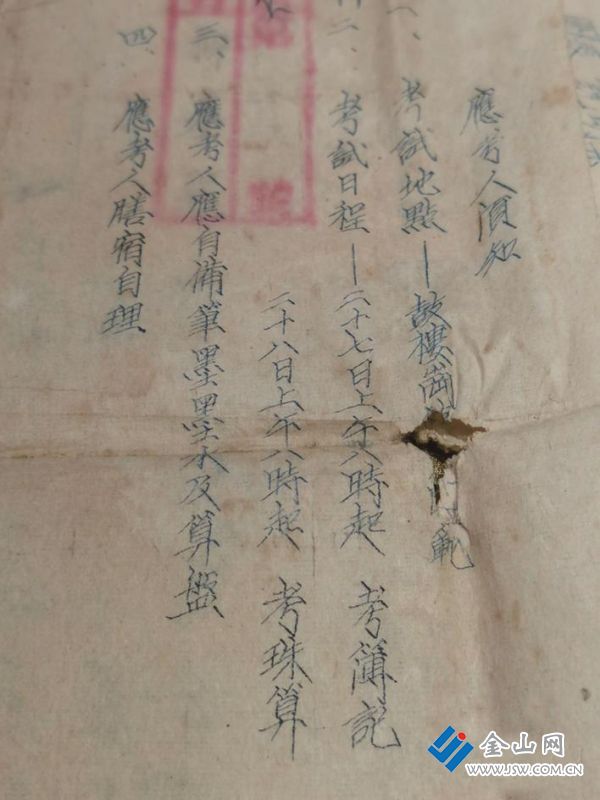 應考人須知
一、考試地點—鼓樓崗
範
二、考試日程—二十七日上午八時起 考簿記
二十八日上午八時起 考珠算
三、應考人應自備筆墨墨水及算盤
四、應考人膳宿自理
第
號
金山网
WWW.JSW.COM.CN